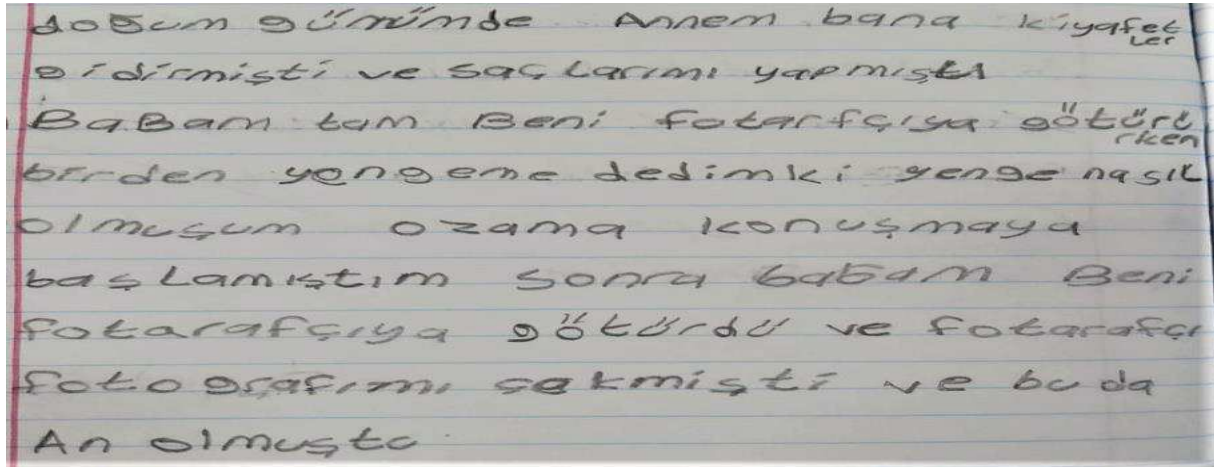 doğum günümde Annem bana kiyafetler
gidirmişti ve saçlarımı yapmıştı
BaBam tam Beni fotarfçıya götürürken
birden yengeme dedimki yenge nasıl
olmuşum ozama konuşmaya
başlamıştım sonra babam Beni
fotarafçıya götürdü ve fotarafçı
fotoğrafımı çekmişti ve bu da
An olmuştu